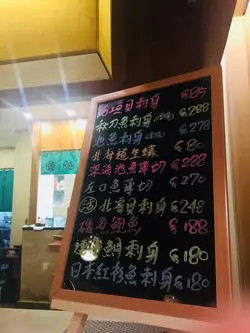 貝刺身 $85
秋刀魚刺身 $288
池魚刺身 $278
北海道生蠔 $80
深海池魚薄切 $288
左口魚薄切 $270
活北寄貝刺身 $248
磯煮鮑魚 $188
鯛刺身 $180
日本紅衫魚刺身 $180